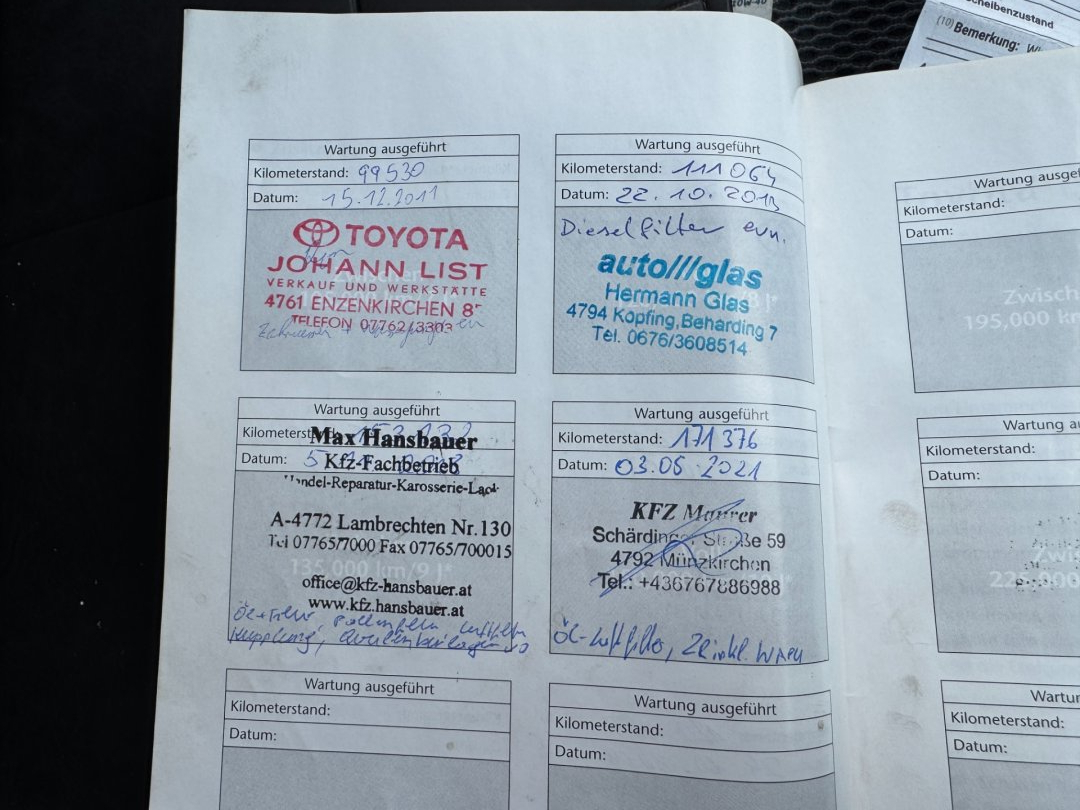 10W-40
cheibenzustand
(10) Bemerkung:
Wartung ausgeführt
Kilometerstand: 99530
Datum: 15.12.2011
TOYOTA
JOHANN LIST
VERKAUF UND WERKSTÄTTE
4761 ENZENKIRCHEN 8
TELEFON 07762/3303
Wartung ausgeführt
Kilometerstand: 111064
Datum: 22.10.2013
Dieselfilter ern.
auto///glas
Hermann Glas
4794 Kopfing, Beharding 7
Tel. 0676/3608514
Wartung ausgeführt
Kilometerst
Datum: 5
Max Hansbauer
Kfz-Fachbetrieb
Handel-Reparatur-Karosserie-Lack
A-4772 Lambrechten Nr.130
Tel 07765/7000 Fax 07765/700015
135,000 km/9 J
office@kfz-hansbauer.at
www.kfz.hansbauer.at
Öl+Filter Pollenfilter Luftfilter
Kupplung,
Wartung ausgeführt
Kilometerstand: 171376
Datum: 03.05.2021
KFZ Maurer
Schärdinger Straße 59
4792 Münzkirchen
Tel.: +436767886988
Öl-Luftfilter, ZR inkl. WAPU
Wartung ausgeführt
Kilometerstand:
Datum:
Wartung ausgeführt
Kilometerstand:
Datum:
Wartung ausgef
Kilometerstand:
Datum:
Zwisch
195,000 km
Wartung au
Kilometerstand:
Datum:
Zwi
225,000
Wartur
Kilometerstand:
Datum: